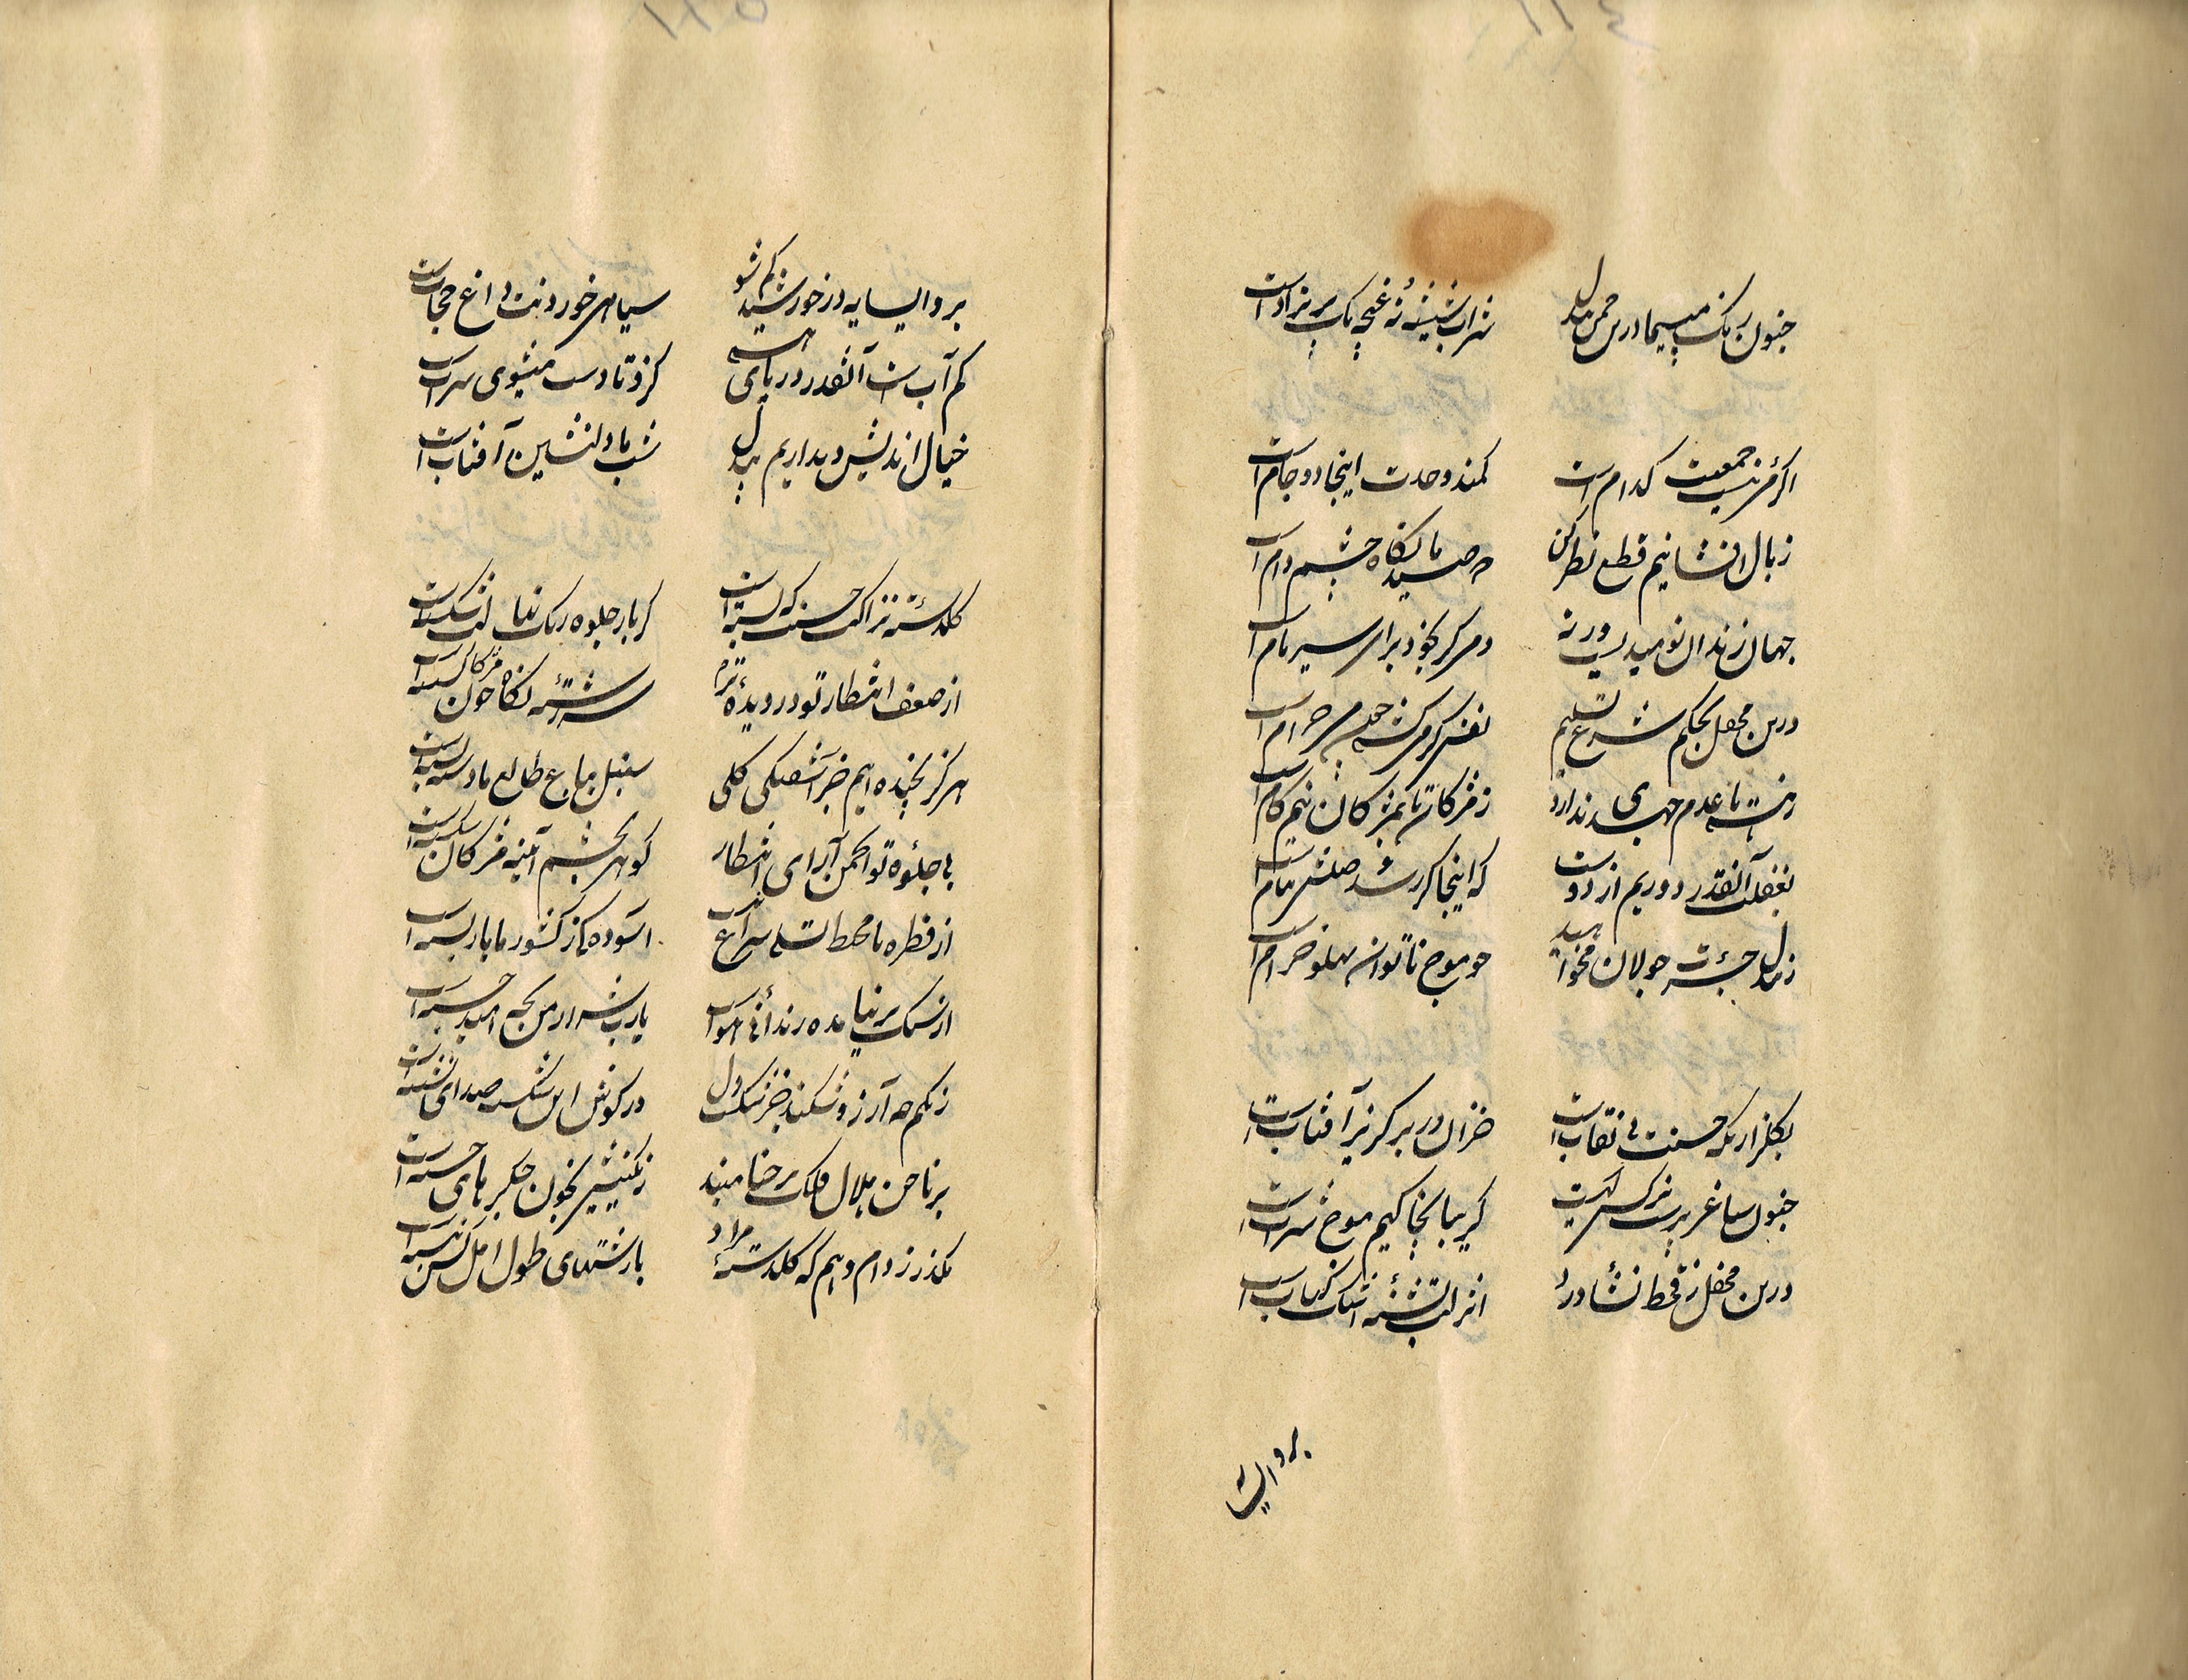 جنون رنک میپیما درین چمن بیدل
شراب شیشهٔ نه غنچه یک پریزاد است
اکر مژ نسب جمعیت کدام است
کمند وحدت اینجا دو جام است
ز بال افشانیم قطع نظر کن
که صید ما نکاه چشم دام است
جهان زندان نومیدیست ورنه
دمی کز خود برای سیر بام است
درین محفل بحکم شرع تسلیم
نفس کر می کشی چون می حرام است
ز هستی تا عدم جهدی ندارد
ز مژکان تا بمژکان نیم کام است
بغفلت آنقدر دوریم از دوست
که اینجا کر رسد وصلش پیام است
ز بیدل جرئت جولان مخواهید
چو موج این ناتوان پهلو خرام است
بکلزاریکه حسنت بی نقاب است
خزان در برکریز آفتاب است
جنون ساغر پرست نرکس کیست
کریبانچاکیم موج شراب است
درین محفل ز قحط نشاء درد
اثر لب تشنهٔ اشک کباب است
برو ای سایه
برو ای سایه در خورشید کم شو
سیاهی خوردنت داغ حجاب است
کم آب است آنقدر دریای هستی
کزو تا دست میشوی سراب است
خیال اندیش دیداریم بیدل
شب ما دلنشین آفتاب است
کلدستهٔ نزاکت حسنت که بسته است
کز بار جلوه رنک بهارت شکسته است
از ضعف انتظار تو در دیدهٔ ترم
سررشتهٔ نکاه چون مژکان کسسته است
هرکز نچیده ایم جز آشفتکی کلی
سنبل بباغ طالع ما دسته بسته است
با جلوه تو انجمن آرای انتظار
کوهر بچشم آینه مژکان شکسته است
از قطره تا محیط تسلی سراغ نیست
آسوده کی ز کشور ما بار بسته است
از سنک برنیامده زندانی هواست
یارب شرار من بچه امید جسته است
زنکم چه آرزو شکند جز شکست دل
در کوش این شکسته صدای نشسته است
بر ناخن هلال فلک پر حنا مبند
رنکینیش بخون جکرهای خسته است
بکذر ز دام وهم که کلدستهٔ مراد
با رشتهای طول امل کس نبسته است